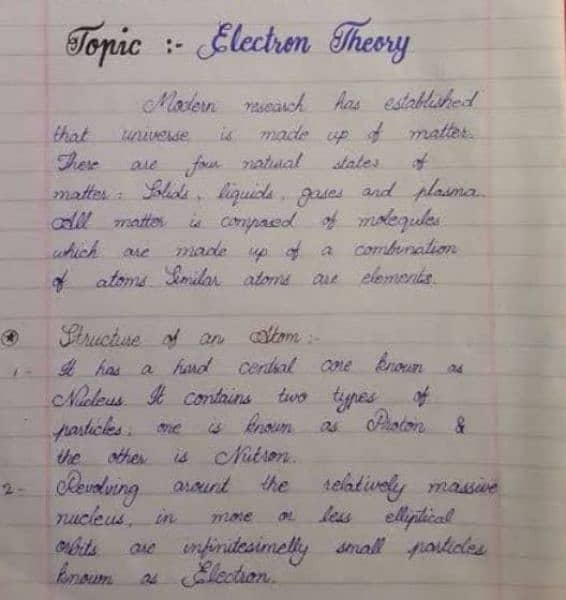 Topic :- Electron Theory
Modern research has established
that universe is made up of matter.
There are four natural states of
matter : Solids, liquids, gases and plasma.
All matter is composed of molequles
which are made up of a combination
of atoms. Similar atoms are elements.
Structure of an Atom :-
1 - It has a hard central core known as
Nucleus It contains two types of
particles; one is known as Proton &
the other is Nutron.
2 - Revolving arount the relatively massive
nucleus, in more or less elliptical
orbits are infinitesimelly small particles
known as Electron.